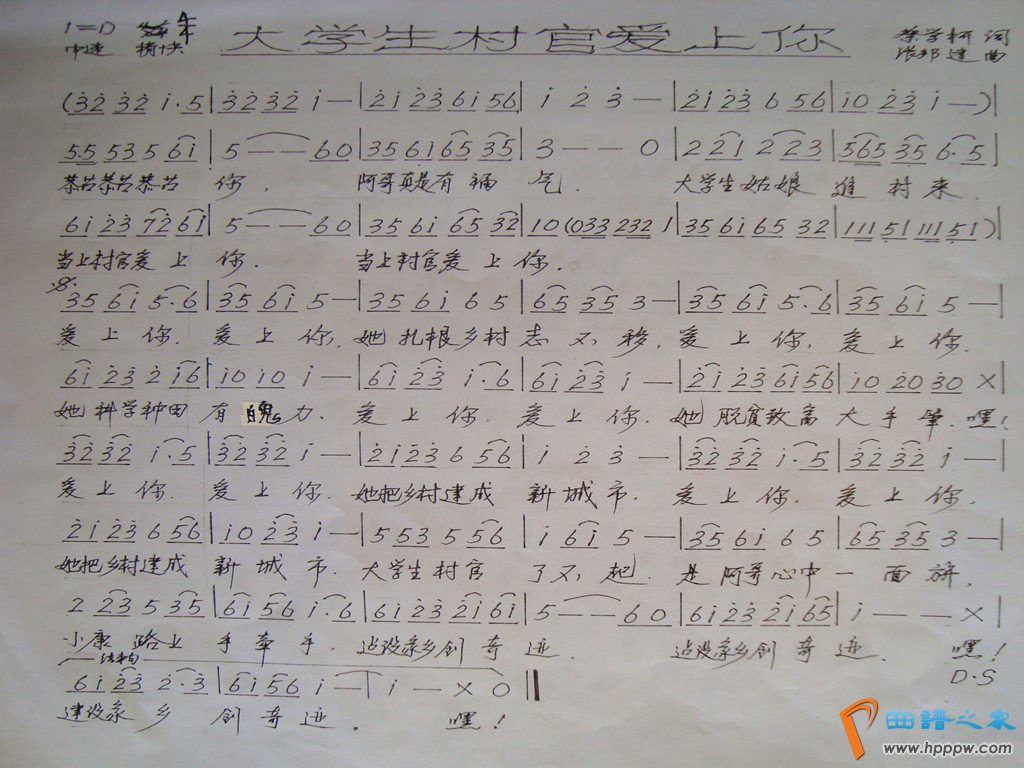 1=D 4/4 大学生村官爱上你 词
中速 稍快 曲
(32 32 i·5|32 32 i —|2i 23 6i 56|i 2 3 —|2i 23 6 56|i0 23 i —)|
5.5 53 5 6i|5 — — 60|35 6i 65 35|3 — — 0|2 221 2 223|565 35 6·5|
恭喜恭喜恭喜 你. 阿哥真是有福 气. 大学生姑娘 进 村来.
6i 23 72 6i|5 — — 60|35 6i 65 32|10 (033 232 1|35 6i 65 32|111 51 111 51)|
当上村官爱上 你. 当上村官爱上你.
35 6i 5·6|35 6i 5 —|35 6i 6 5|65 35 3 —|35 6i 5·6|35 6i 5 —|
爱上你. 爱上你. 她扎根乡村志不移. 爱上你. 爱上你.
6i 23 2 i6|i0 i0 i —|6i 23 i·6|6i 23 i —|2i 23 6i 56|i0 20 30 X|
她科学种田有魄力. 爱上你. 爱上你. 她脱贫致富大手笔. 嘿!
32 32 i·5|32 32 i —|2i 23 6 56|i 2 3 —|32 32 i·5|32 32 i —|
爱上你. 爱上你. 她把乡村建成 新城市. 爱上你. 爱上你.
2i 23 6 56|i0 23 i —|5 53 5 56|i 6i 5 —|35 6i 6 5|65 35 3 —|
她把乡村建成 新城市. 大学生村官 了不起. 是阿哥心中一面旗.
2 23 5 35|6i 56 i·6|6i 23 2i 6i|5 — — 60|6i 23 2i 65|i — — X|
小康路上手牵手. 建设家乡创奇迹. 建设家乡创奇迹. 嘿!
结构 D.S
6i 23 2·3|6i 56 i —|i — X 0‖
建设家乡 创奇迹. 嘿!
曲谱之家
www.hpppw.com